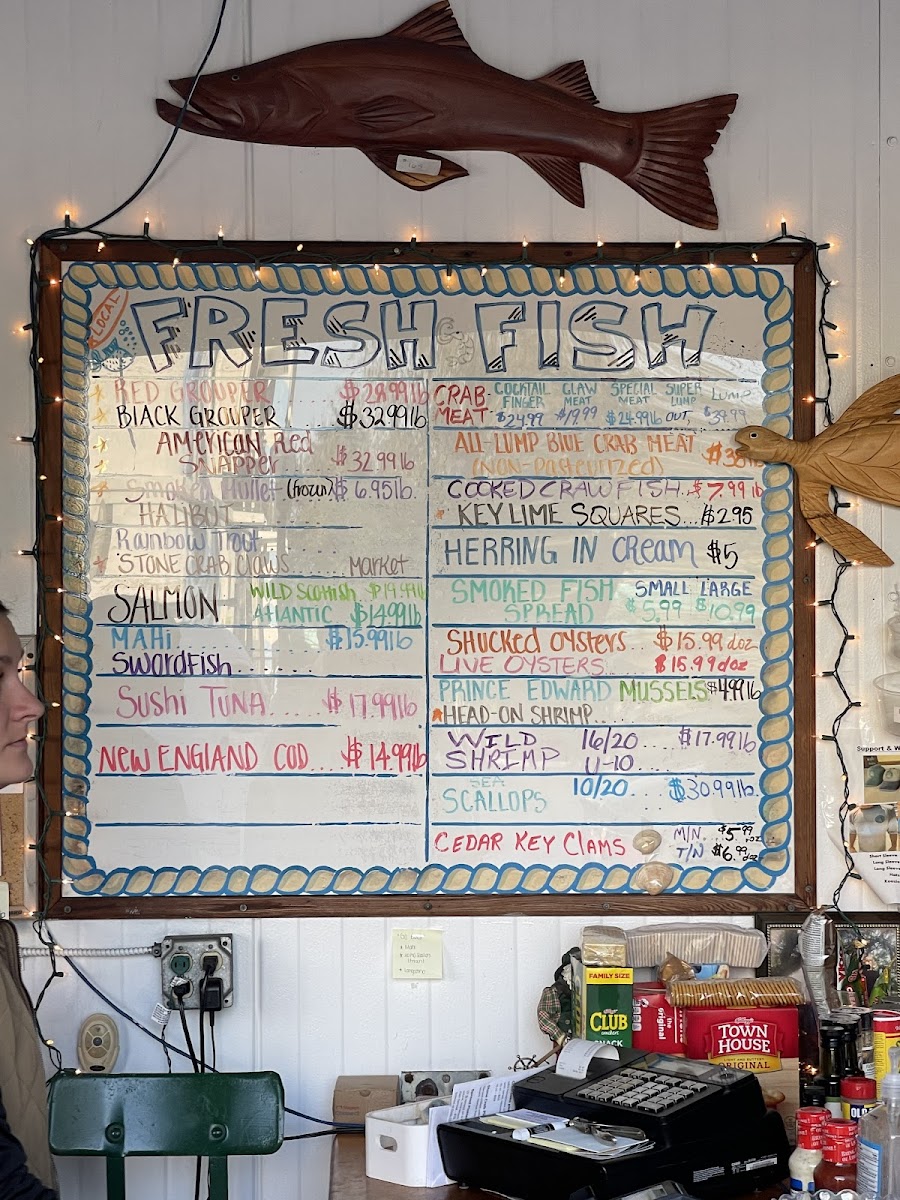 LOCAL
FRESH FISH
RED GROUPER $28.99lb
BLACK GROUPER $32.99lb
AMERICAN Red
SNAPPER $32.99lb
Smoked Mullet (frozen) $6.95lb.
HALIBUT
Rainbow Trout
STONE CRAB CLAWS MARKET
SALMON
WILD SCOTTISH
ATLANTIC $14.99lb
MAHI $15.99lb
SWORDFISH
SUSHI TUNA $17.99lb
NEW ENGLAND COD $14.99lb
CRAB MEAT
COCKTAIL FINGER $24.99
CLAW MEAT $19.99
SPECIAL MEAT $24.99lb
SUPER LUMP OUT,
LUMP $39.99
ALL LUMP BLUE CRAB MEAT
(NON-Pasteurized)
COOKED CRAWFISH.. $7.99lb
KEY LIME SQUARES... $2.95
HERRING IN CREAM $5
SMOKED FISH SMALL LARGE
SPREAD $5.99 $10.99
SHUCKED OYSTERS .. $15.99 doz
LIVE OYSTERS... $15.99 doz
PRINCE EDWARD MUSSELS $4.99lb
HEAD-ON SHRIMP..
WILD 16/20 $17.99lb
SHRIMP U-10
SEA
SCALLOPS 10/20 $30.99lb.
CEDAR KEY CLAMS
M/N. $5.99 doz
T/N $6.99 doz
Support & W
FAMILY SIZE
CLUB
SNACK
the original
Kellogg's
TOWN
HOUSE
LIGHT AND BUTTERY
ORIGINAL
OLD